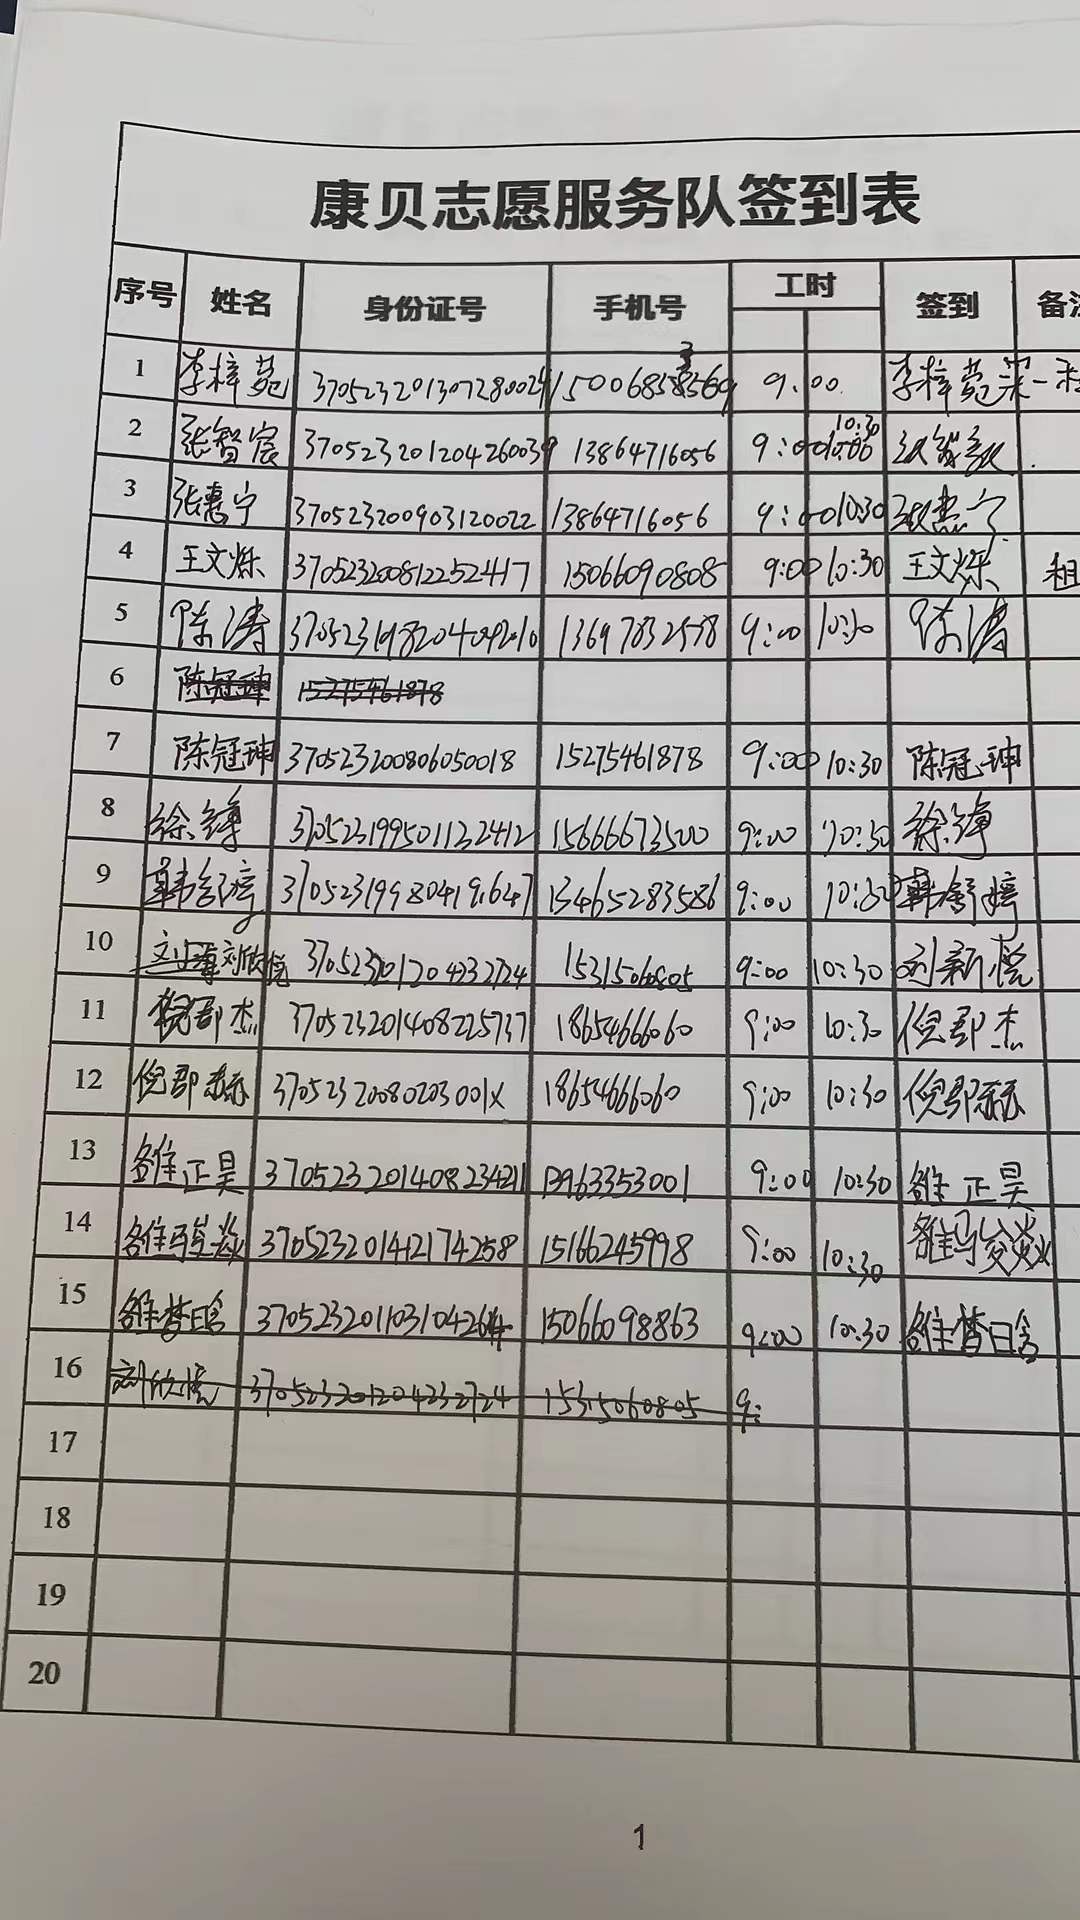 康贝志愿服务队签到表
序号 姓名 身份证号 手机号 工时 签到 备注
1 李梓菀 370523201307280024 9:00 李梓菀
2 张智宸 370523201204260039 13864716056 9:00 10:30
3 张惠宁 370523200903120022 13864716056 9:00 10:30 张惠宁
4 王文烁 370523200812252417 15066090808 9:00 10:30 王文烁
5 陈涛 13697832578 9:00 10:30 陈涛
6 陈冠珅 15275461878
7 陈冠珅 370523200806050018 15275461878 9:00 10:30 陈冠珅
8 370523199501122412 15666673500 9:00 10:30
9 韩舒婷 370523199804196247 13465283586 9:00 10:30 韩舒婷
10 刘欣悦 370523201204232724 15315060805 9:00 10:30 刘新悦
11 倪郡杰 370523201408225737 18654666060 9:00 10:30 倪郡杰
12 倪郡赫 37052320080203001X 18654666060 9:00 10:30 倪郡赫
13 雒正昊 370523201408234211 13963353001 9:00 10:30 雒正昊
14 雒骏焱 370523201412174258 15166245998 9:00 10:30 雒骏焱
15 雒梦晗 15066098863 9:00 10:30 雒梦晗
16 刘欣悦 370523201204232724 15315060805 9:
17
18
19
20
1